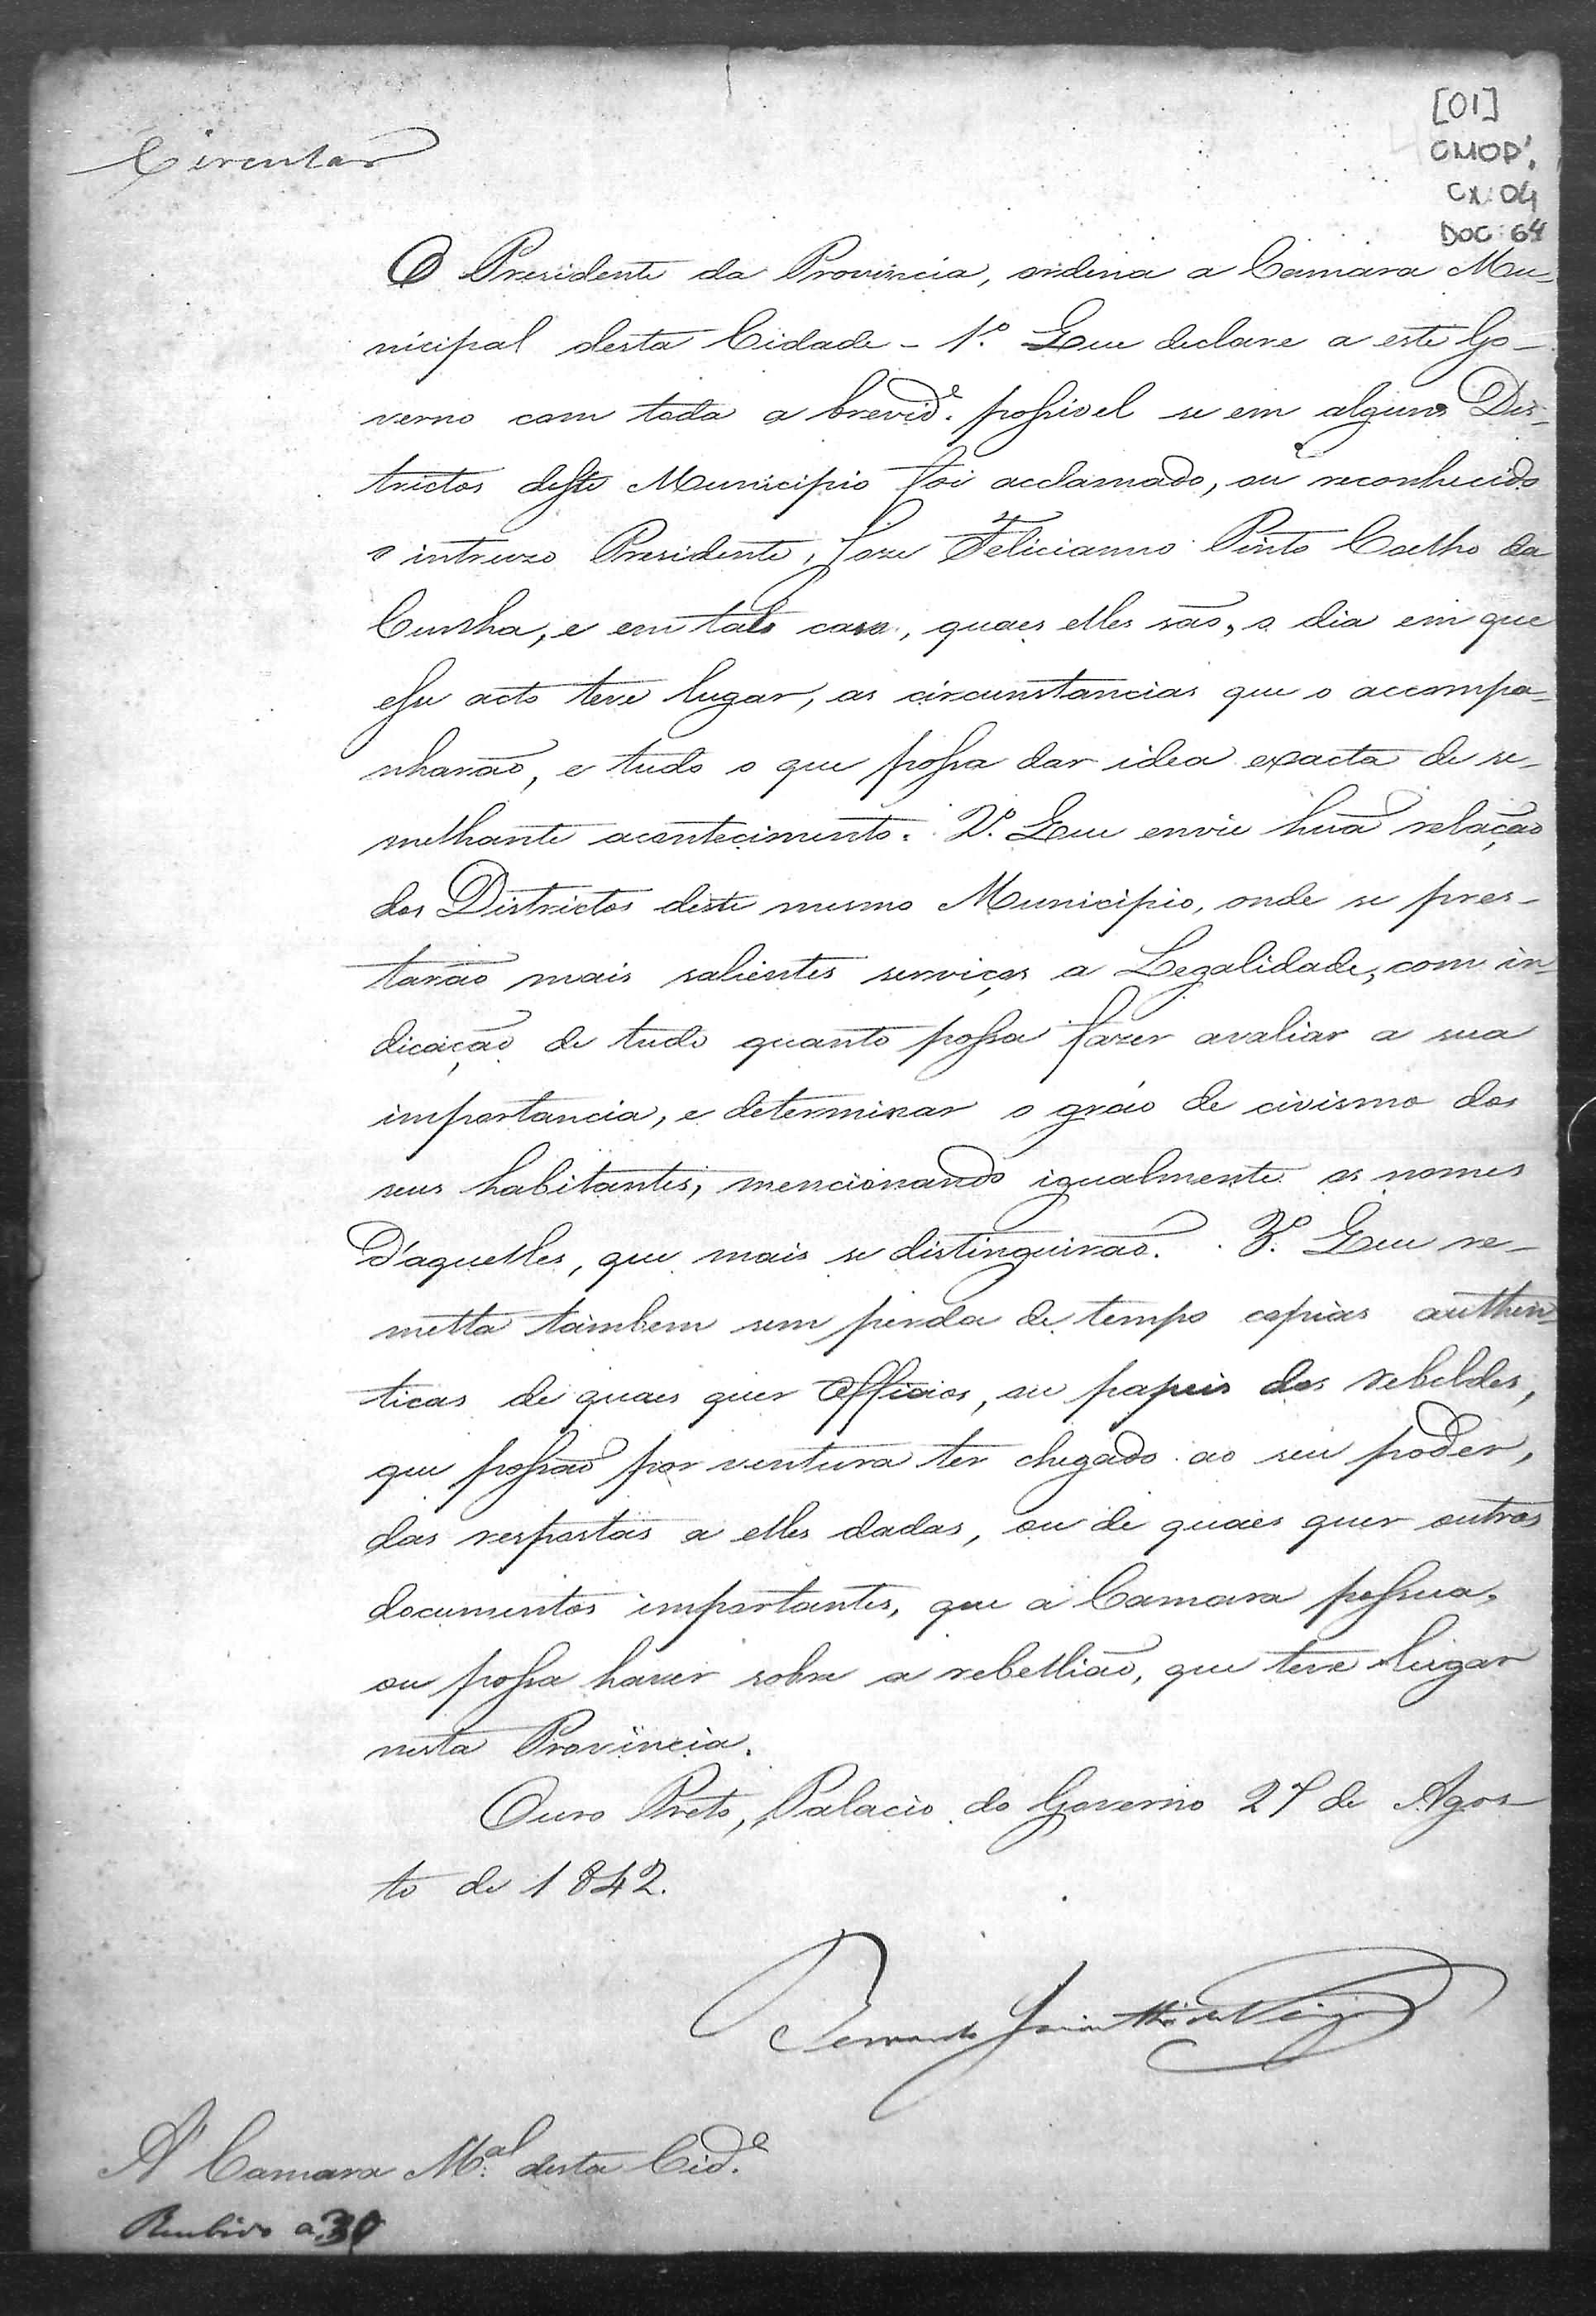 [01]
CMOP.
CX: 04
DOC: 64
Circular
O Presidente da Provincia, ordena a Camara Mu-
nicipal desta Cidade - 1.º Que declare a este Go-
verno com toda a brevid.e possivel se em alguns Dis-
trictos deste Municipio foi acclamado, ou reconhecido
o intruzo Presidente, Jose Felicianno Pinto Coelho da
Cunha, e em tal caso, quaes elles são, o dia em que
esse acto teve lugar, as circunstancias que o accompa-
nharão, e tudo o que possa dar idea exacta de se-
melhante acontecimento. 2.º Que envie huã relação
dos Districtos deste mesmo Municipio, onde se pres-
tarão mais salientes serviços a Legalidade, com in-
dicação de tudo quanto possa fazer avaliar a sua
importancia, e determinar o gráo de civismo dos
seus habitantes, mencionando igualmente os nomes
D'aquelles, que mais se distinguirão. 3.º Que re-
metta tambem sem perda de tempo copias authen-
ticas de quaes quer Officios, ou papeis dos rebeldes,
que possão por ventura ter chegado ao seu poder,
das respostas a elles dadas, ou de quaes quer outros
documentos importantes, que a Camara possua,
ou possa haver sobre a rebellião, que teve lugar
nesta Provincia.
Ouro Preto, Palacio do Governo 27 de Agos-
to de 1842.
Bernardo Jacintho da Veiga
A' Camara M.al desta Cid.e
Recebido a 30